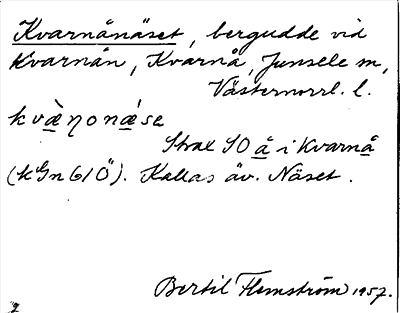 Kvarnånäset, bergudde vid
Kvarnån, Kvarnå, Junsele sn,
Västernorrl. l.
kvæ̀ŋonǽsə
Strax SO å i Kvarnå
(kGn 610). Kallas äv. Näset.
Bertil Flemström 1957.